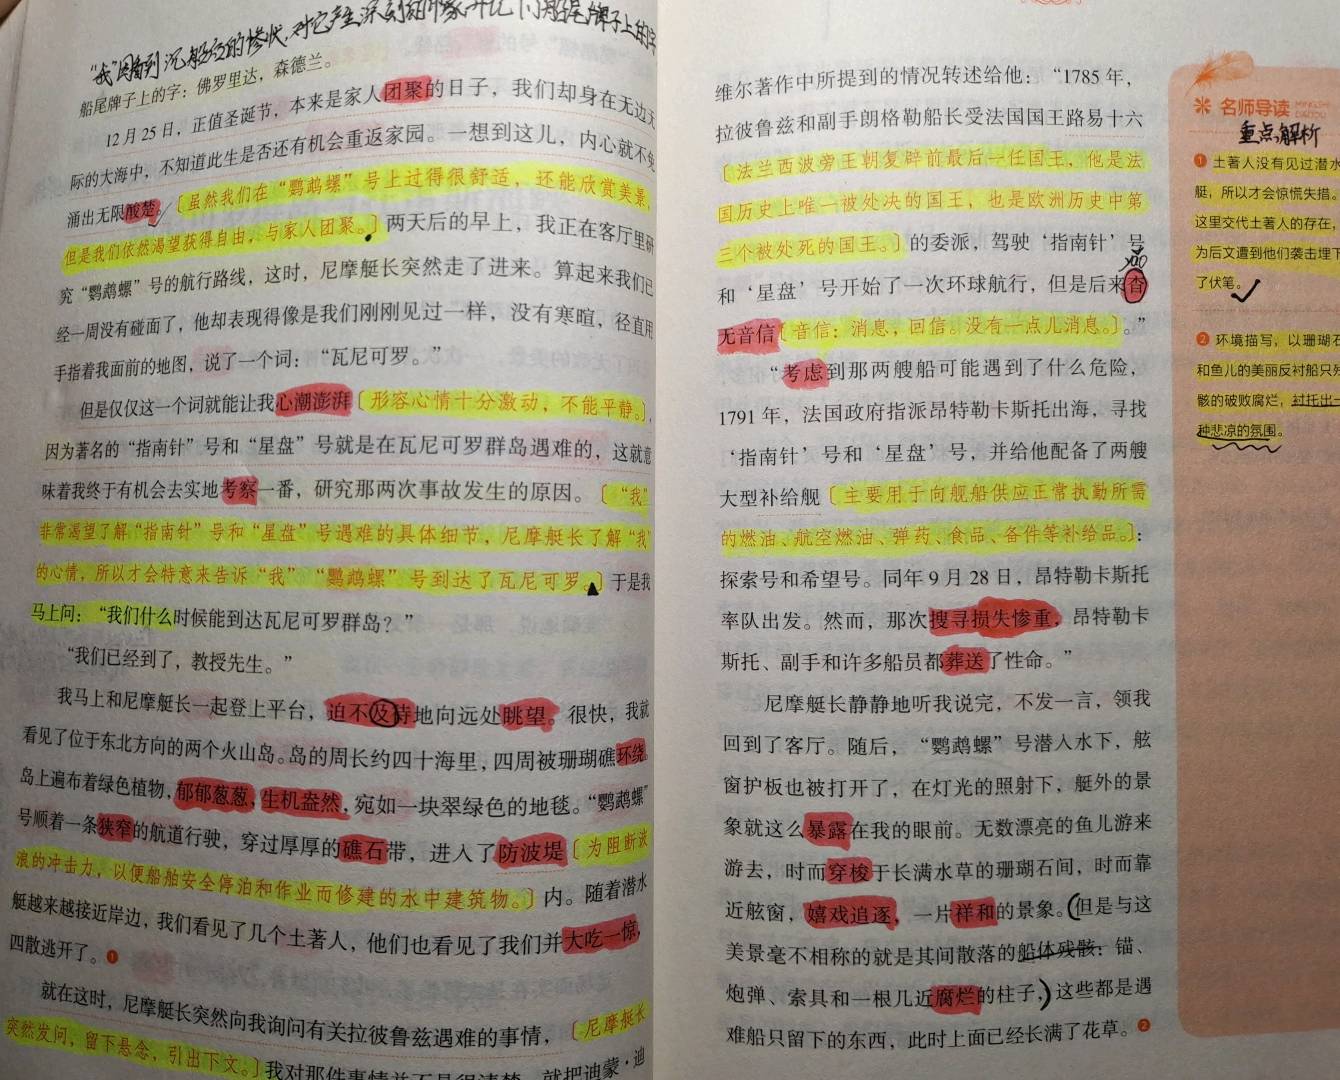 “我”因看到沉船的惨状,对它产生深刻的印象,并记下了船尾牌子上的字
船尾牌子上的字：佛罗里达，森德兰。
12月25日，正值圣诞节，本来是家人团聚的日子，我们却身在无边无
际的大海中，不知道此生是否还有机会重返家园。一想到这儿，内心就不免
涌出无限酸楚。〔虽然我们在“鹦鹉螺”号上过得很舒适，还能欣赏美景，
但是我们依然渴望获得自由，与家人团聚。〕两天后的早上，我正在客厅里研
究“鹦鹉螺”号的航行路线，这时，尼摩艇长突然走了进来。算起来我们已
经一周没有碰面了，他却表现得像是我们刚刚见过一样，没有寒暄，径直用
手指着我面前的地图，说了一个词：“瓦尼可罗。”
但是仅仅这一个词就能让我心潮澎湃〔形容心情十分激动，不能平静。〕，
因为著名的“指南针”号和“星盘”号就是在瓦尼可罗群岛遇难的，这就意
味着我终于有机会去实地考察一番，研究那两次事故发生的原因。〔“我”
非常渴望了解“指南针”号和“星盘”号遇难的具体细节，尼摩艇长了解“我”
的心情，所以才会特意来告诉“我”“鹦鹉螺”号到达了瓦尼可罗。〕于是我
马上问：“我们什么时候能到达瓦尼可罗群岛？”
“我们已经到了，教授先生。”
我马上和尼摩艇长一起登上平台，迫不及待地向远处眺望。很快，我就
看见了位于东北方向的两个火山岛。岛的周长约四十海里，四周被珊瑚礁环绕。
岛上遍布着绿色植物，郁郁葱葱，生机盎然，宛如一块翠绿色的地毯。“鹦鹉螺”
号顺着一条狭窄的航道行驶，穿过厚厚的礁石带，进入了防波堤〔为阻断波
浪的冲击力，以便船舶安全停泊和作业而修建的水中建筑物。〕内。随着潜水
艇越来越接近岸边，我们看见了几个土著人，他们也看见了我们并大吃一惊，
四散逃开了。❶
就在这时，尼摩艇长突然向我询问有关拉彼鲁兹遇难的事情，〔尼摩艇长
突然发问，留下悬念，引出下文。〕我对那件事情并不是很清楚，就把迪蒙·迪
维尔著作中所提到的情况转述给他：“1785年，
拉彼鲁兹和副手朗格勒船长受法国国王路易十六
〔法兰西波旁王朝复辟前最后一任国王，他是法
国历史上唯一被处决的国王，也是欧洲历史中第
三个被处死的国王。〕的委派，驾驶‘指南针’号
yǎo
和‘星盘’号开始了一次环球航行，但是后来杳
无音信〔音信：消息，回信。没有一点儿消息。〕。”
“考虑到那两艘船可能遇到了什么危险，
1791年，法国政府指派昂特勒卡斯托出海，寻找
‘指南针’号和‘星盘’号，并给他配备了两艘
大型补给舰〔主要用于向舰船供应正常执勤所需
的燃油、航空燃油、弹药、食品、备件等补给品。〕：
探索号和希望号。同年9月28日，昂特勒卡斯托
率队出发。然而，那次搜寻损失惨重，昂特勒卡
斯托、副手和许多船员都葬送了性命。”
尼摩艇长静静地听我说完，不发一言，领我
回到了客厅。随后，“鹦鹉螺”号潜入水下，舷
窗护板也被打开了，在灯光的照射下，艇外的景
象就这么暴露在我的眼前。无数漂亮的鱼儿游来
游去，时而穿梭于长满水草的珊瑚石间，时而靠
近舷窗，嬉戏追逐，一片祥和的景象。但是与这
美景毫不相称的就是其间散落的船体残骸：锚、
炮弹、索具和一根几近腐烂的柱子，这些都是遇
难船只留下的东西，此时上面已经长满了花草。❷
名师导读
重点,解析
❶ 土著人没有见过潜水
艇，所以才会惊慌失措。
这里交代土著人的存在，
为后文遭到他们袭击埋下
了伏笔。
❷ 环境描写，以珊瑚石
和鱼儿的美丽反衬船只残
骸的破败腐烂，衬托出一
种悲凉的氛围。